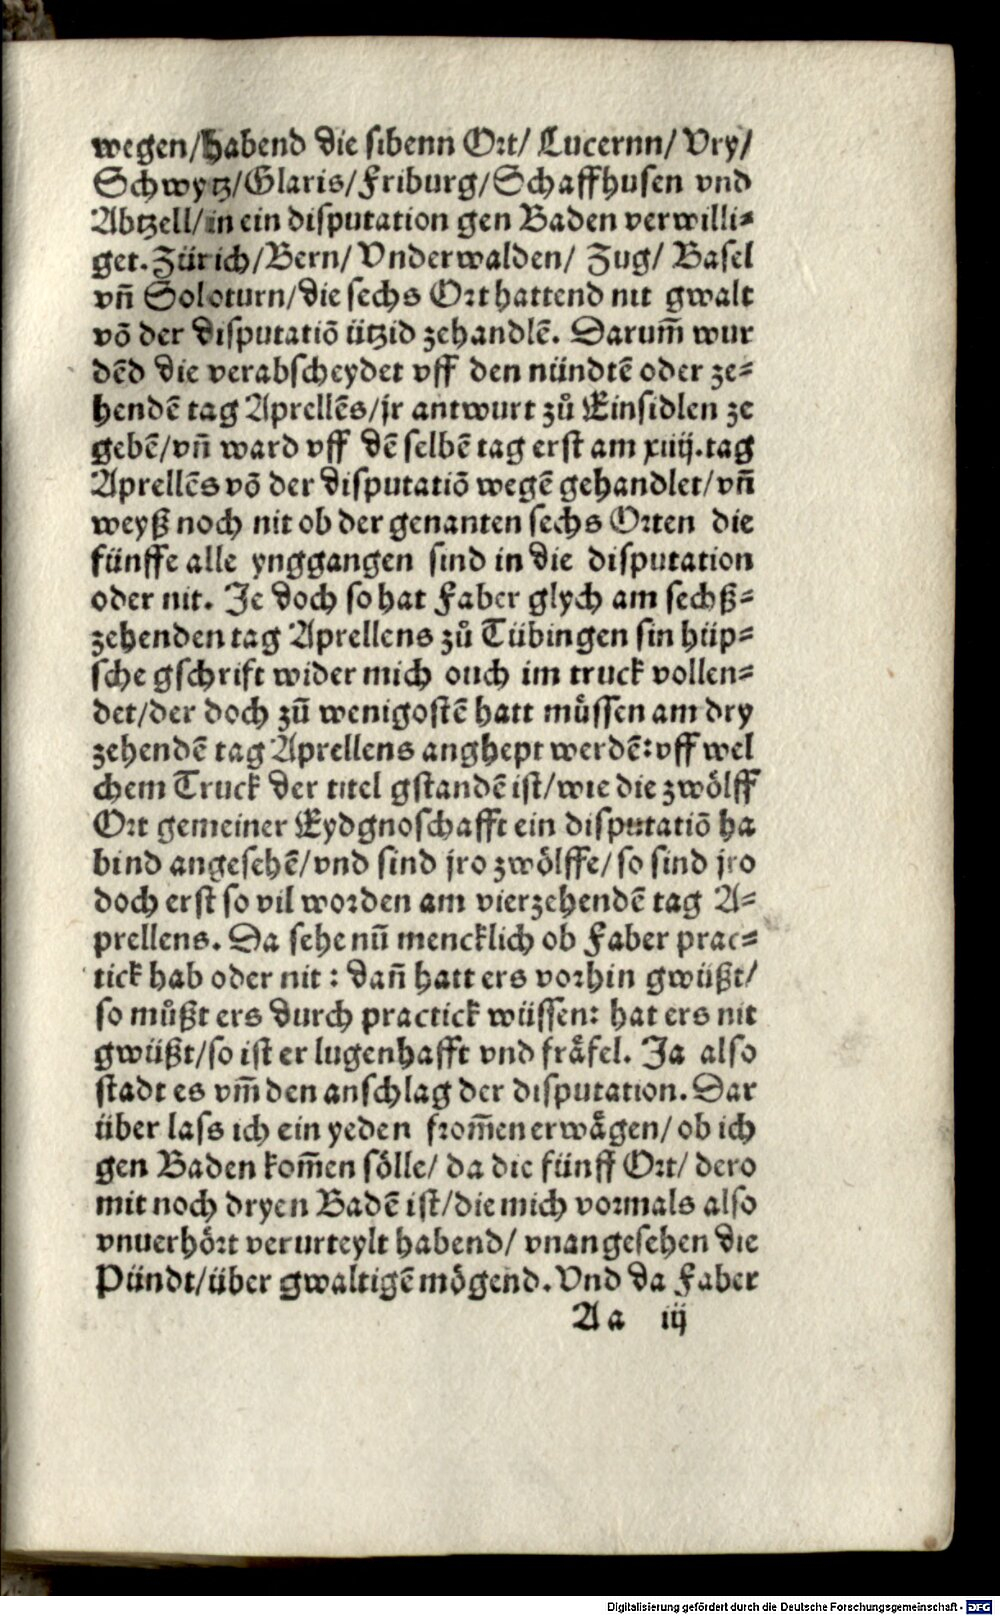 wegen/habend die sibenn Ort/ Lucernn/ Vry/
Schwytz/Glaris/Friburg/Schaffhusen vnd
Abtzell/in ein disputation gen Baden verwilli-
get. Zürich/Bern/ Vnderwalden/ Zug/ Basel
vñ Soloturn/die sechs Ort hattend nit gwalt
võ der disputatiõ ützid zehandlẽ. Darum̃ wur
dẽd die verabscheydet vff den nündtẽ oder ze-
hendẽ tag Aprellẽs/jr antwurt zů Einsidlen ze
gebẽ/vñ ward vff dẽ selbẽ tag erst am xiiij.tag
Aprellẽs võ der disputatiõ wegẽ gehandlet/vñ
weyß noch nit ob der genanten sechs Orten die
fünffe alle ynggangen sind in die disputation
oder nit. Je doch so hat Faber glych am sechß-
zehenden tag Aprellens zů Tübingen sin hüp-
sche gschrift wider mich ouch im truck vollen-
det/der doch zũ wenigostẽ hatt müssen am dry
zehendẽ tag Aprellens anghept werdẽ: vff wel
chem Truck der titel gstandẽ ist/wie die zwölff
Ort gemeiner Eydgnoschafft ein disputatiõ ha
bind angesehẽ/vnd sind jro zwölffe/so sind jro
doch erst so vil worden am vierzehendẽ tag A-
prellens. Da sehe nũ mencklich ob Faber prac-
tick hab oder nit: dañ hatt ers vorhin gwüßt/
so můßt ers durch practick wüssen: hat ers nit
gwüßt/so ist er lugenhafft vnd fräfel. Ja also
stadt es vm̃ den anschlag der disputation. Dar
über lass ich ein yeden from̃en erwägen/ ob ich
gen Baden kom̃en sölle/ da die fünff Ort/ dero
mit noch dryen Badẽ ist/die mich vormals also
vnuerhört verurteylt habend/ vnangesehen die
Pündt/über gwaltigẽ mögend. Vnd da Faber
Aa iij
Digitalisierung gefördert durch die Deutsche Forschungsgemeinschaft - DFG